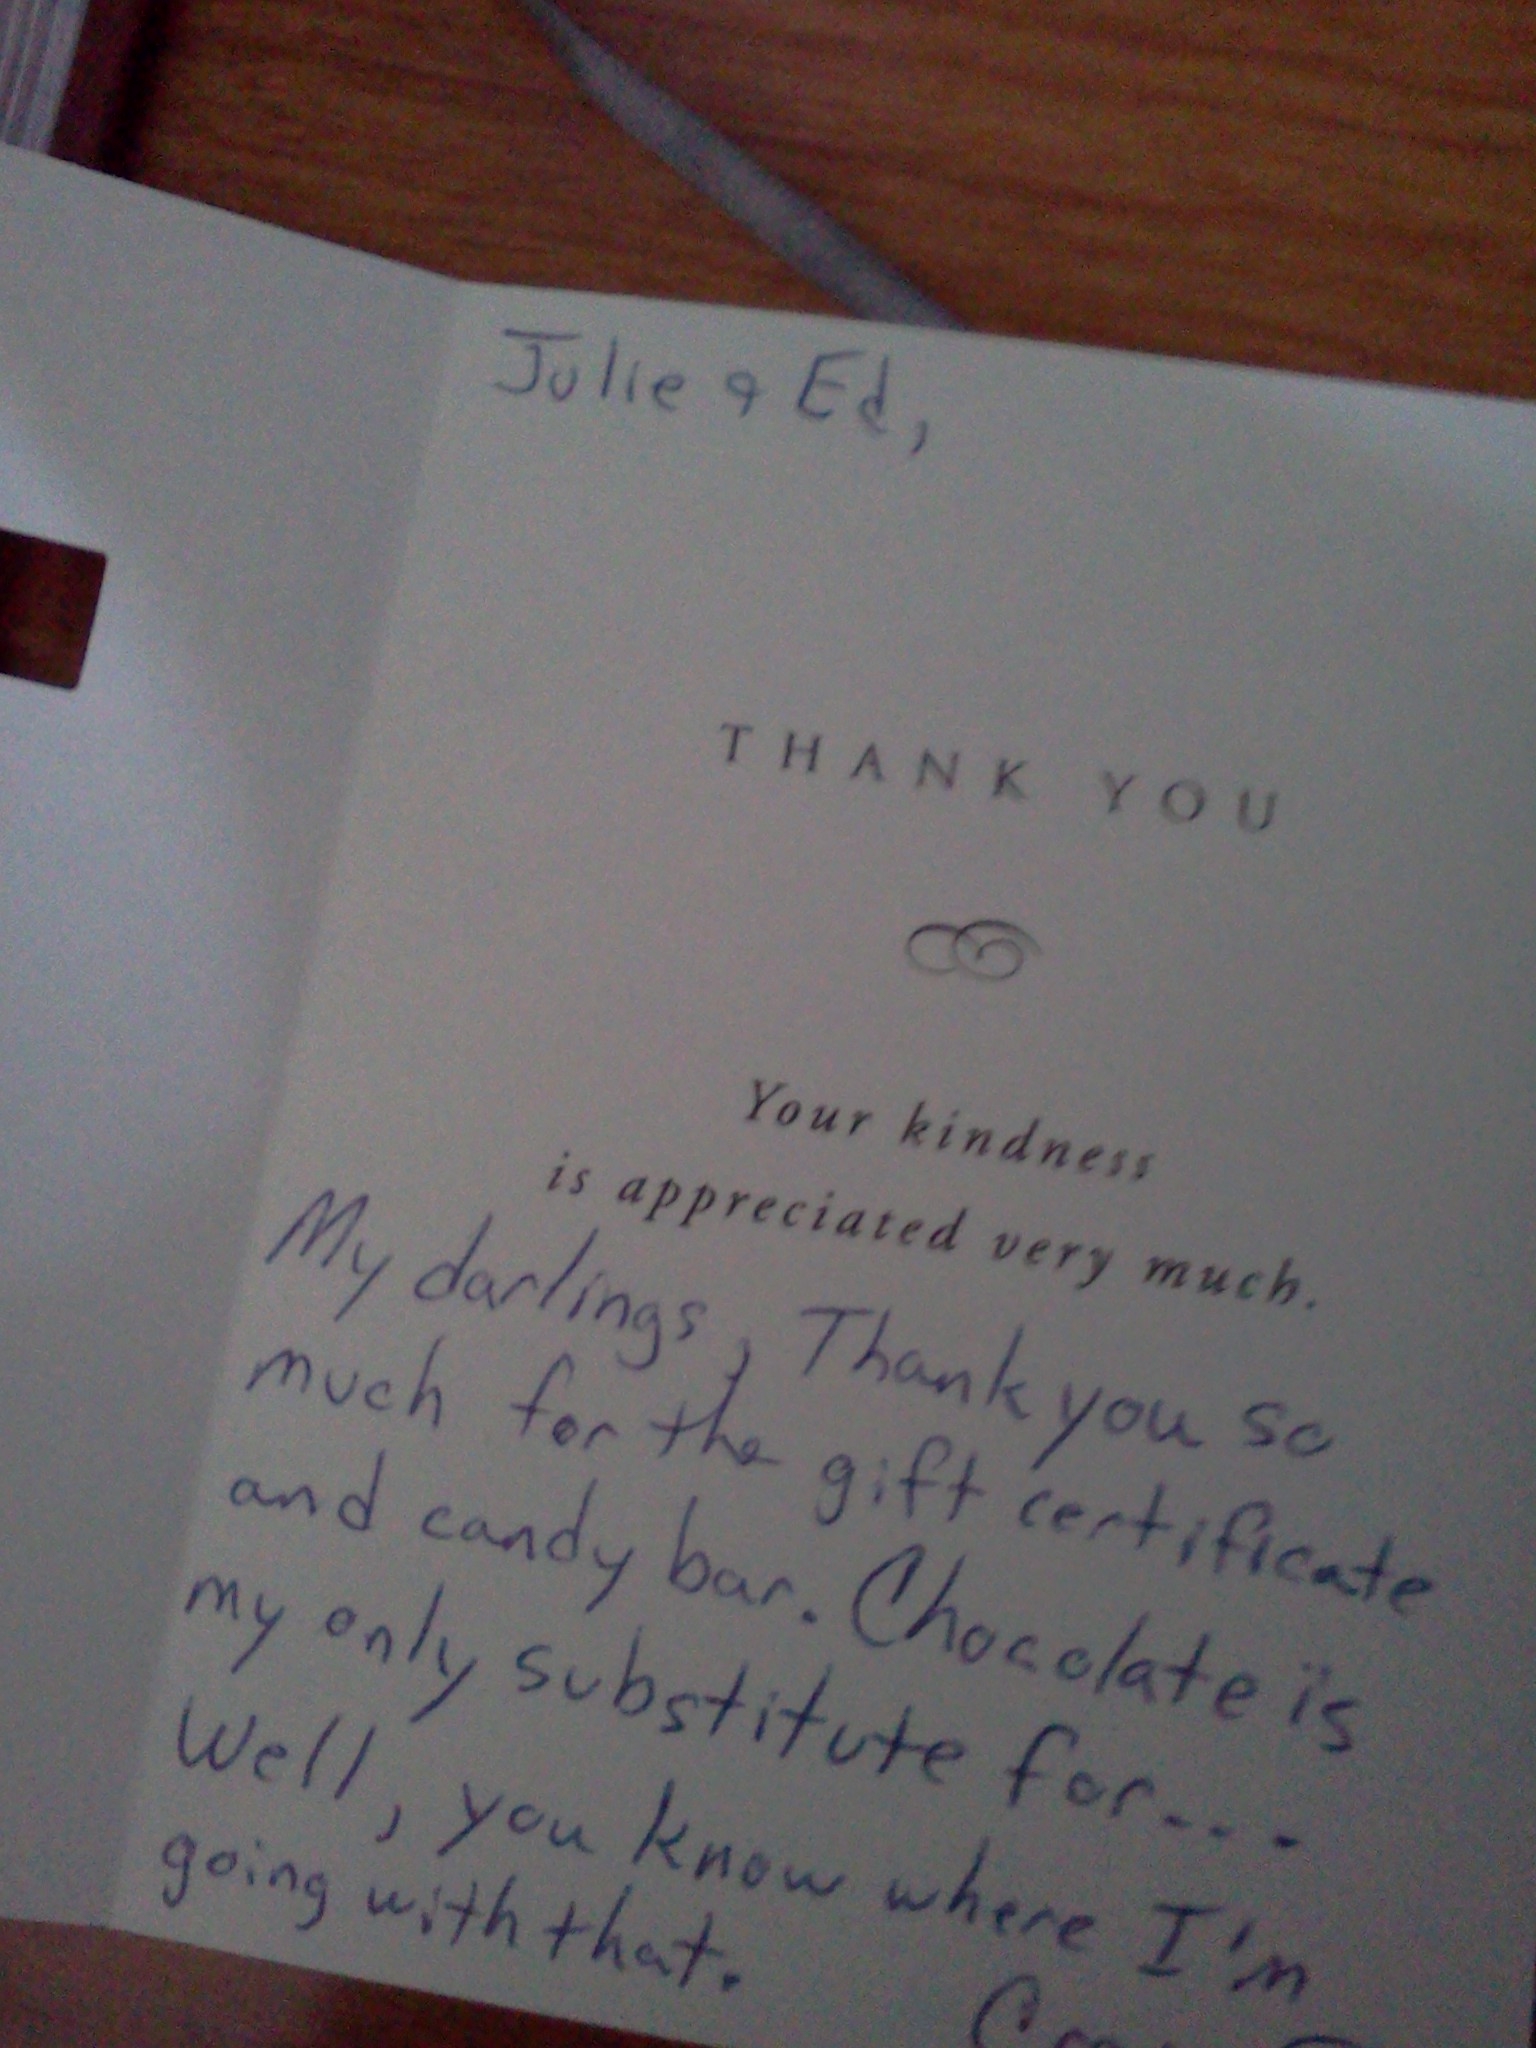 Julie & Ed,
THANK YOU
Your kindness
is appreciated very much.
My darlings, Thank you so
much for the gift certificate
and candy bar. Chocolate is
my only substitute for...
Well, you know where I'm
going with that.